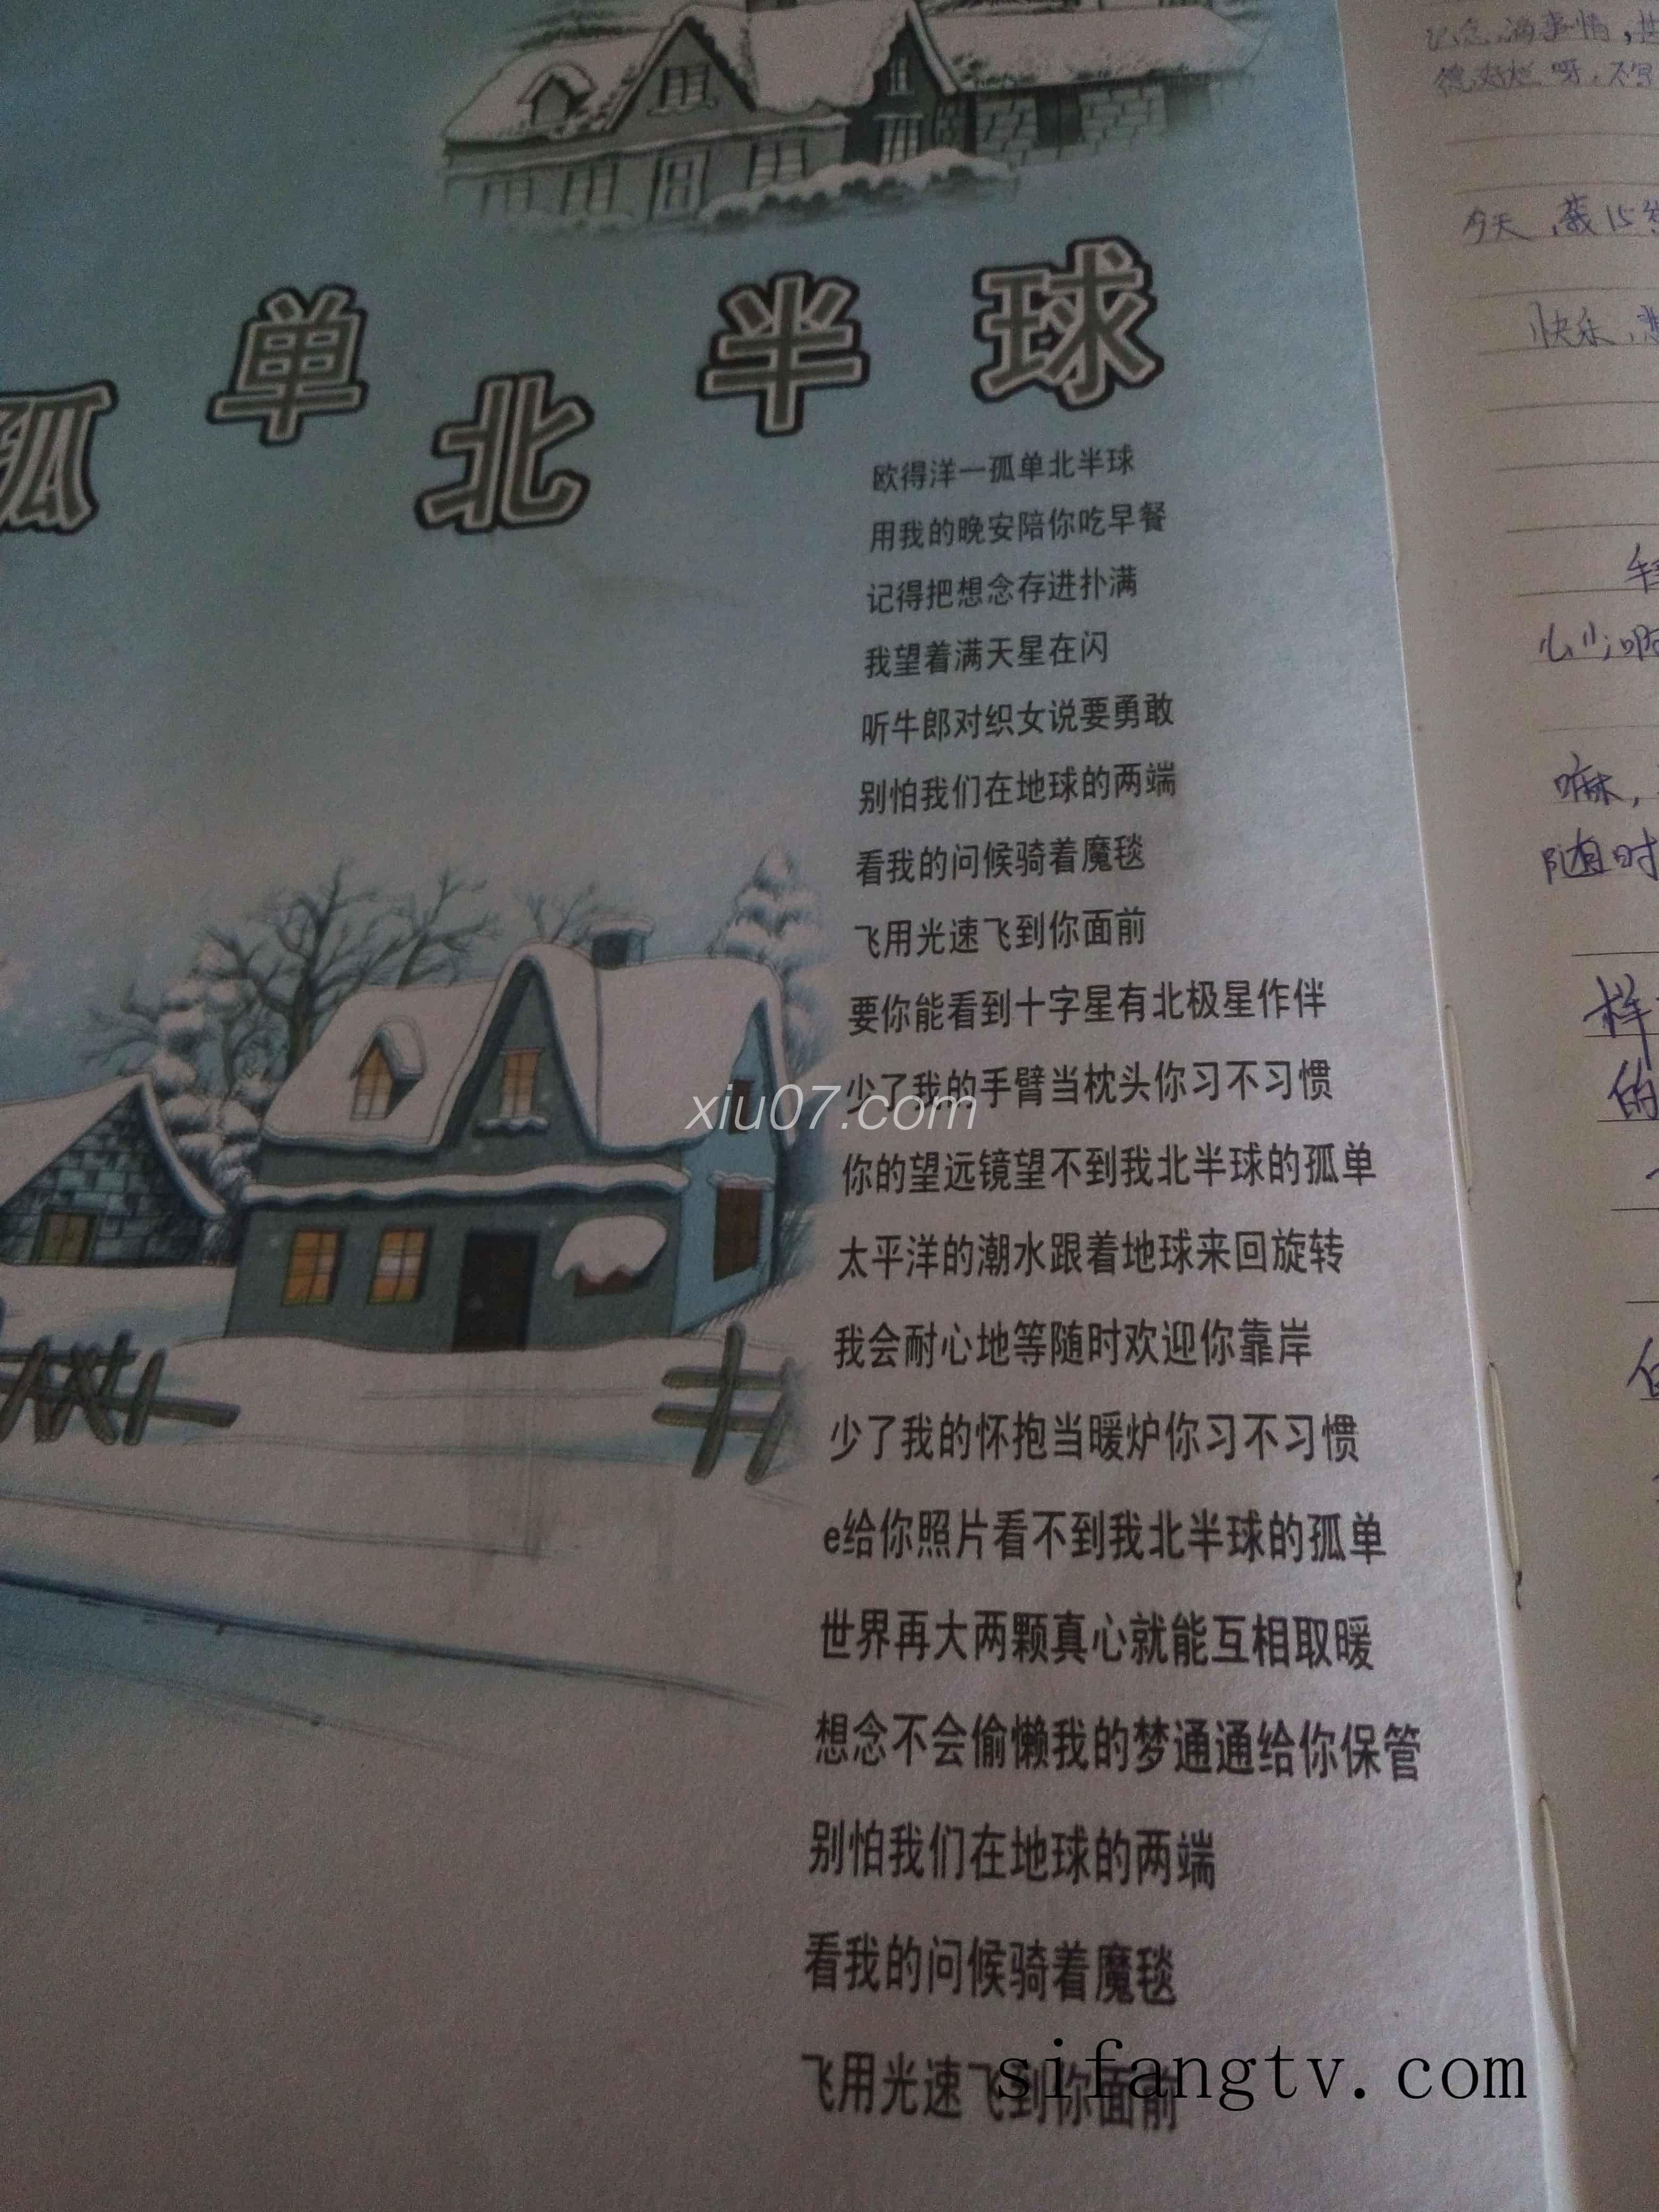 孤单北半球
欧得洋一孤单北半球
用我的晚安陪你吃早餐
记得把想念存进扑满
我望着满天星在闪
听牛郎对织女说要勇敢
别怕我们在地球的两端
看我的问候骑着魔毯
飞用光速飞到你面前
要你能看到十字星有北极星作伴
少了我的手臂当枕头你习不习惯
你的望远镜望不到我北半球的孤单
太平洋的潮水跟着地球来回旋转
我会耐心地等随时欢迎你靠岸
少了我的怀抱当暖炉你习不习惯
e给你照片看不到我北半球的孤单
世界再大两颗真心就能互相取暖
想念不会偷懒我的梦通通给你保管
别怕我们在地球的两端
看我的问候骑着魔毯
飞用光速飞到你面前
xiu07.com
sifangtv.com
今天
快乐
嘛，
随时
样
的